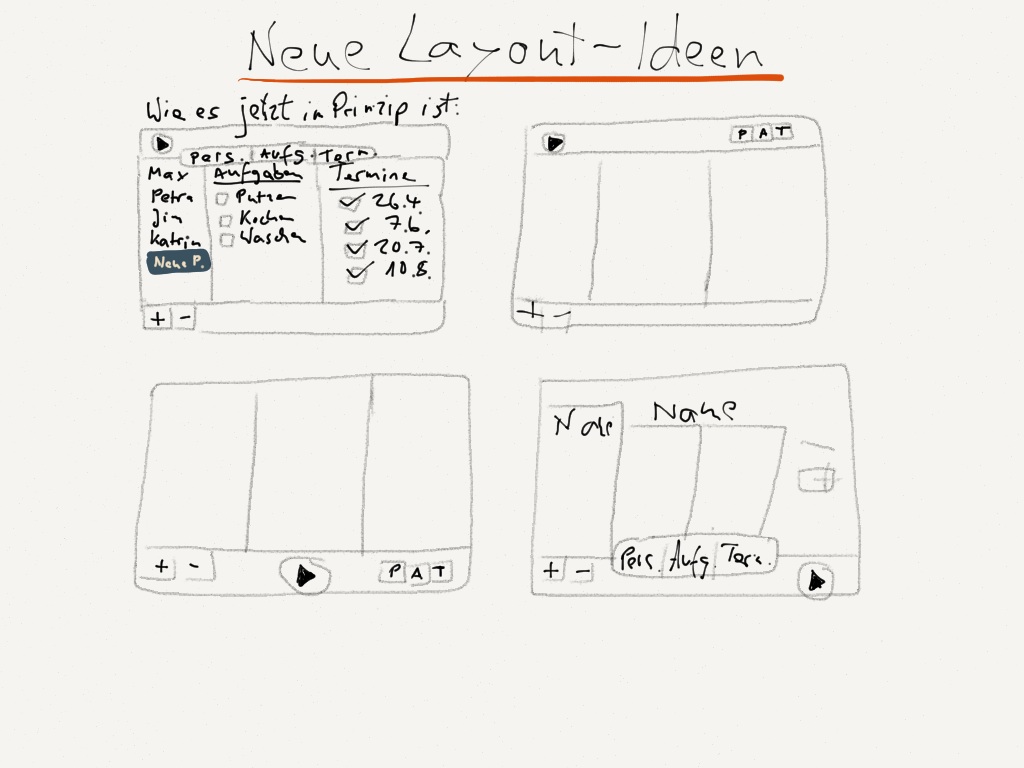 Neue Layout-Ideen
Wie es jetzt im Prinzip ist:
Pers. Aufg. Term.
Max
Petra
Jim
Katrin
Neue P.
Aufgaben
Putzen
Kochen
Waschen
Termine
26.4.
7.6.
20.7.
10.8.
+ -
P A T
+ -
+ -
P A T
Name
Name
Pers. Aufg. Term.
+ -